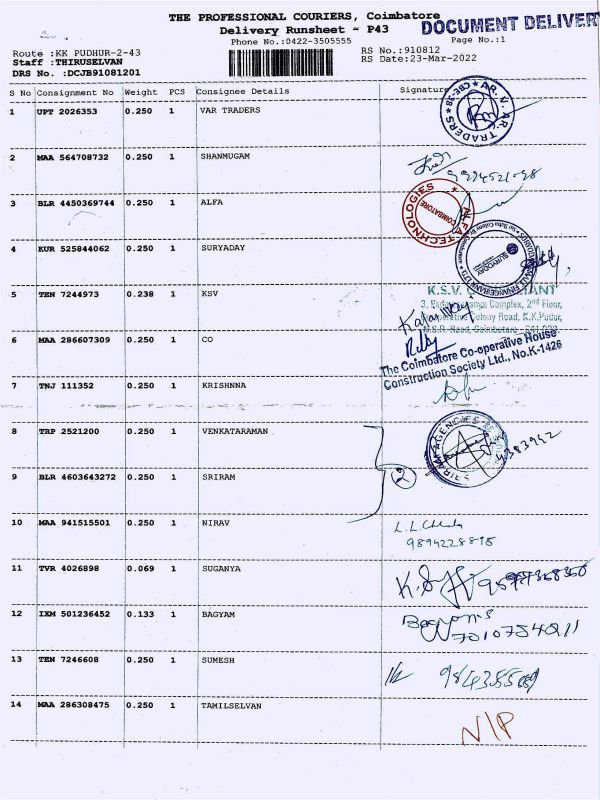 THE PROFESSIONAL COURIERS, Coimbatore
DOCUMENT DELIVERY
Delivery Runsheet - P43
Phone No.:0422-3505555
Page No.:1
Route :KK PUDHUR-2-43
RS No.:910812
Staff :THIRUSELVAN
RS Date:23-Mar-2022
DRS No. :DCJB91081201
S No Consignment No Weight PCS Consignee Details Signature
1 UPT 2026353 0.250 1 VAR TRADERS
AR. V. AR. TRADERS ★ CBE-38 ★
2 MAA 564708732 0.250 1 SHANMUGAM
3 BLR 4450369744 0.250 1 ALFA
ALFA TECHNOLOGIES
COIMBATORE
4 KUR 525844062 0.250 1 SURYADAY
SURYODAY
5 TEN 7244973 0.238 1 KSV
K.S.V.
Complex, 2nd Floor,
Colony Road, K.K.Pudur,
N.S.R. Road, Coimbatore
6 MAA 286607309 0.250 1 CO
The Coimbatore Co-operative House
Construction Society Ltd., No.K-1426
7 TNJ 111352 0.250 1 KRISHNNA
8 TRP 2521200 0.250 1 VENKATARAMAN
SRIRAM AGENCIES
9 BLR 4603643272 0.250 1 SRIRAM
10 MAA 941515501 0.250 1 NIRAV
9894228895
11 TVR 4026898 0.069 1 SUGANYA
12 IXM 501236452 0.133 1 BAGYAM
7010754211
13 TEN 7246608 0.250 1 SUMESH
14 MAA 286308475 0.250 1 TAMILSELVAN
N/P